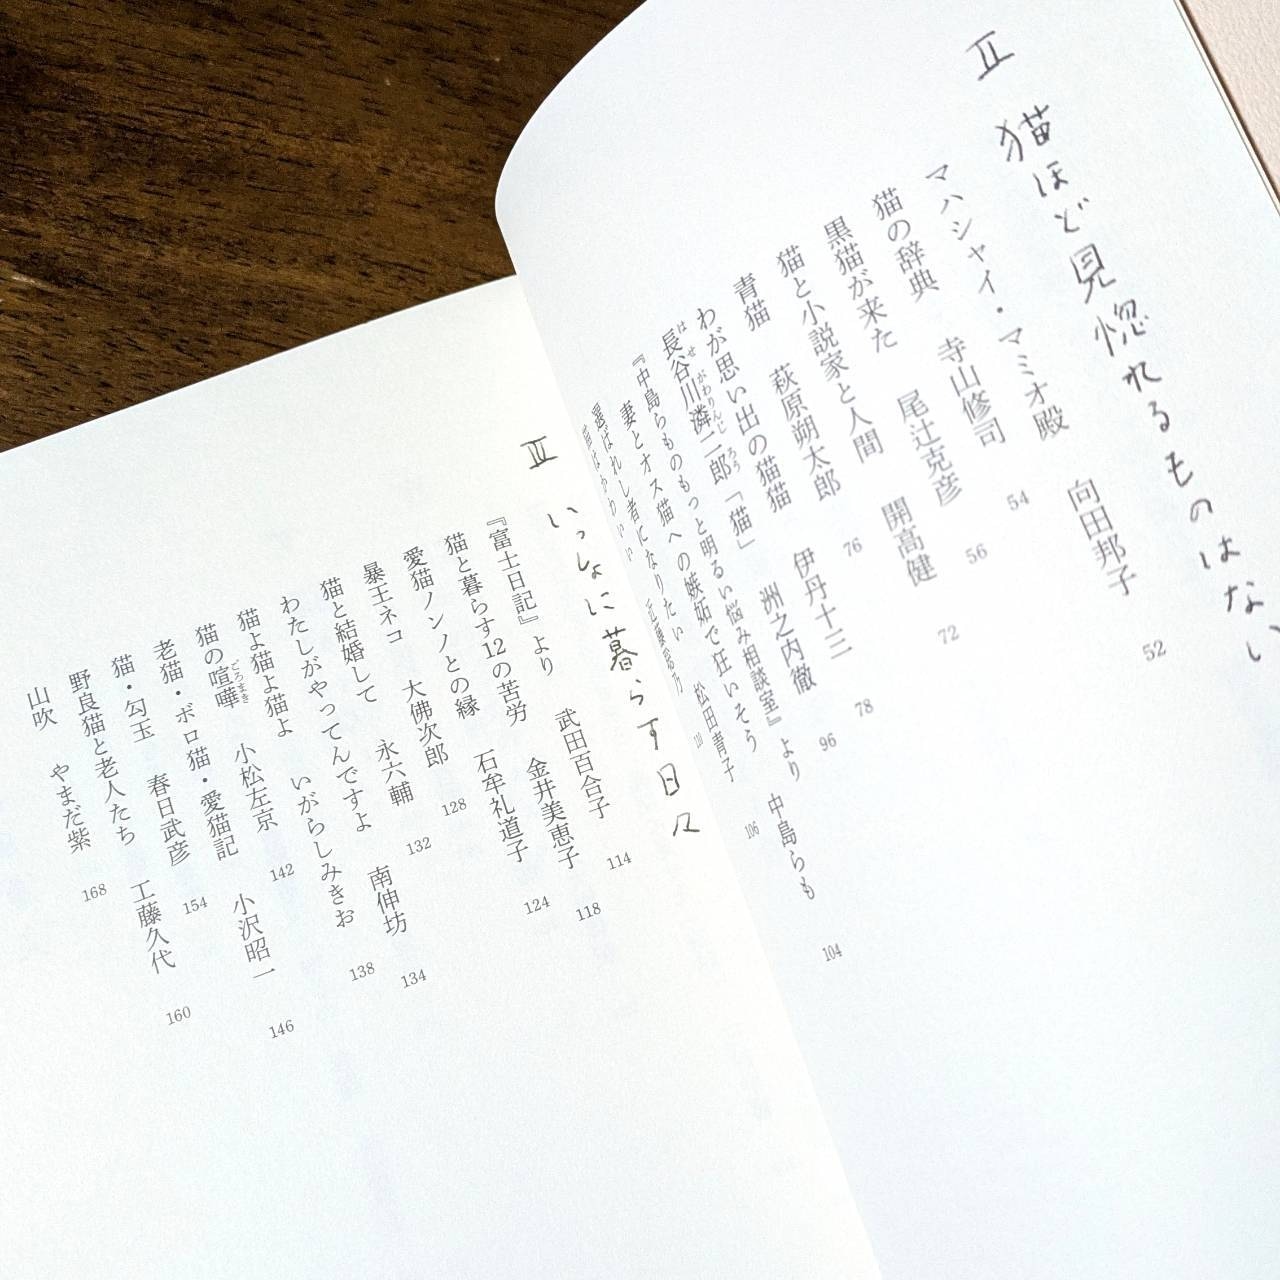 II 猫ほど見惚れるものはない
マハシャイ・マミオ殿 向田邦子 52
猫の辞典 寺山修司 54
黒猫が来た 尾辻克彦 56
猫と小説家と人間 開高健 72
青猫 萩原朔太郎 76
わが思い出の猫猫 伊丹十三 78
長谷川潾二郎「猫」 洲之内徹 96
『中島らものもっと明るい悩み相談室』より 中島らも 104
妻とオス猫への嫉妬で狂いそう
選ばれし者になりたい 松田青子 106
猫はかわいい 110
III いっしょに暮らす日々
『富士日記』より 武田百合子 114
猫と暮らす12の苦労 金井美恵子 118
愛猫ノンノとの縁 石牟礼道子 124
暴王ネコ 大佛次郎 128
猫と結婚して 永六輔 132
わたしがやってんですよ 南伸坊 134
猫よ猫よ猫よ いがらしみきお 138
猫の喧嘩 小松左京 142
老猫・ボロ猫・愛猫記 小沢昭一 146
猫・勾玉 春日武彦 154
野良猫と老人たち 工藤久代 160
山吹 やまだ紫 168